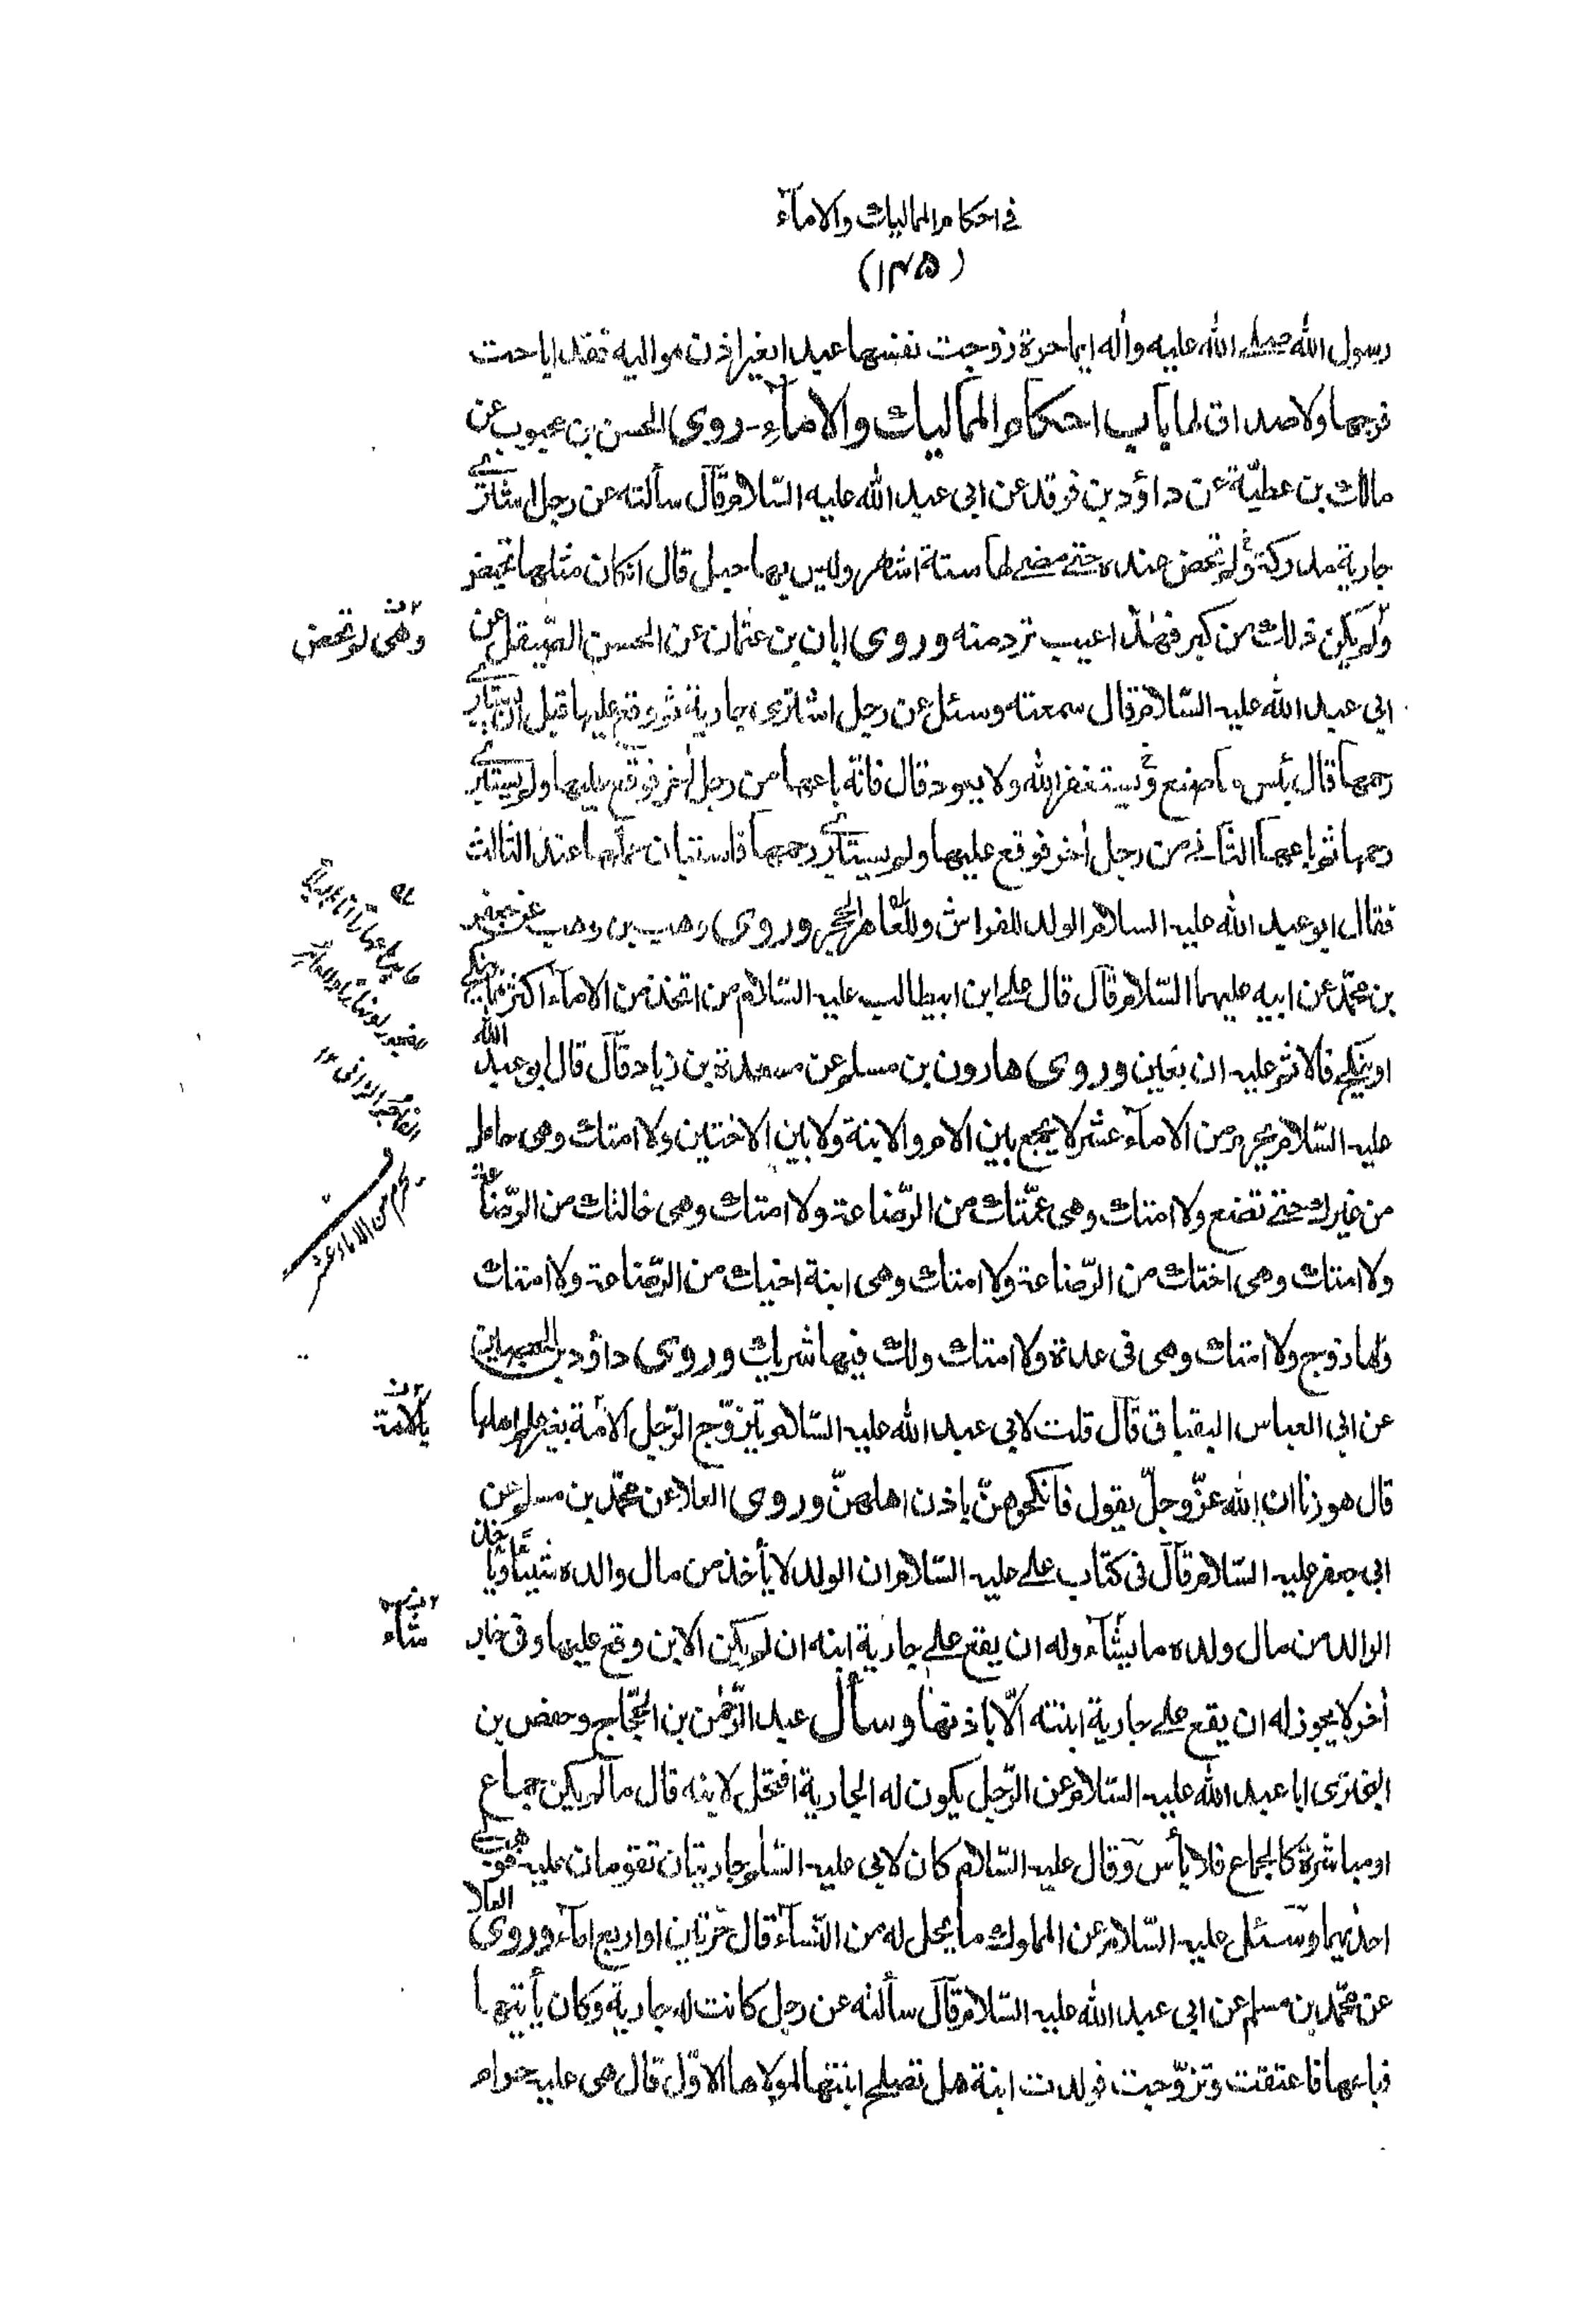 في احكام المماليك والاماۤء
(۱۴۵)
رسول الله صلى الله عليه واٰله ايما حرة زوجت نفسها عبدا بغير اذن مواليه فقد اباحت
فرجها ولا صداق لها باب احكام المماليك والاماۤءِ روى الحسن بن محبوب عن
مالك بن عطيّة عن داؤد بن فرقد عن ابى عبد الله عليه السّلام قال سألته عن رجل اشترى
جارية مدركة ولم تحض عنده حتى مضى لها ستة اشهر وليس بها حبل قال انكان مثلها تحيض
ولم يكن ذلك من كبر فهذا عيب ترد منه وروى ابان بن عثمان عن الحسن الصّيقل عن
ابى عبد الله عليه السّلام قال سمعته وسئل عن رجل اشترى جارية ثم وقع عليها قبل ان يستبرئ
رحمها قال بئس ما صنع ويستغفر الله ولا يعود قال فانّه باعها من رجل اٰخر فوقع عليها ولم يستبرئ
رحمها ثم باعها الثانى من رجل اٰخر فوقع عليها ولم يستبرئ رحمها فاستبان حملها عند الثالث
فقال ابو عبد الله عليه السلام الولد للفراش وللعاهر الحجر وروى وهب بن وهب عن جعفر
بن محمّد عن ابيه عليهما السّلام قال قال على ابن ابيطالب عليه السّلام من اتخذ من الاماۤء اكثر مما ينكح
او ينكح فالاثم عليه ان بغين وروى هارون بن مسلم عن مسعدة بن زياد قال قال ابو عبد الله
عليه السّلام يحرم من الاماۤء عشر لا يجمع بين الام والابنة ولا بين الاختين ولا امتك وهى حامل
من غيرك حتى تضع ولا امتك وهى عمّتك من الرّضاعة ولا امتك وهى خالتك من الرّضاعة
ولا امتك وهى اختك من الرّضاعة ولا امتك وهى ابنة اخيك من الرّضاعة ولا امتك
ولها زوج ولا امتك وهى فى عدة ولا امتك ولك فيها شريك وروى داؤد بن الحصين
عن ابى العباس البقباق قال قلت لابى عبد الله عليه السّلام يتزوّج الرّجل الامة بغير علم اهلها
قال هو زنا ان الله عزّ وجلّ يقول فانكحوهنّ باذن اهلهنّ وروى العلاء عن محمّد بن مسلم عن
ابى جعفر عليه السّلام قال فى كتاب على عليه السّلام ان الولد لا يأخذ من مال والده شيئا ويأخذ
الوالد من مال ولده ما يشاۤء وله ان يقع على جارية ابنه ان لم يكن الابن وقع عليها وفى خبر
اٰخر لا يجوز له ان يقع على جارية ابنته الّا باذنها وسأل عبد الرّحمٰن بن الحجّاج وحفص بن
البخترى ابا عبد الله عليه السّلام عن الرّجل يكون له الجارية افتحل لابنه قال ما لم يكن جماع
او مباشرة كالجماع فلا بأس وقال عليه السّلام كان لابى عليه السّلم جاريتان تقومان عليه فوهب لى
احديهما وسئل عليه السّلام عن المملوك ما يحل له من النّساۤء قال حرّتين او اربع اماۤء وروى العلا
عن محمّد بن مسلم عن ابى عبد الله عليه السّلام قال سألته عن رجل كانت له جارية وكان يأتيها
فباعها فاعتقت وتزوّجت فولدت ابنة هل تصلح ابنتها لمولاها الاوّل قال هى عليه حرام
وهى لم تحض
يحرم من الاماء عشر
بالامة
شاۤء